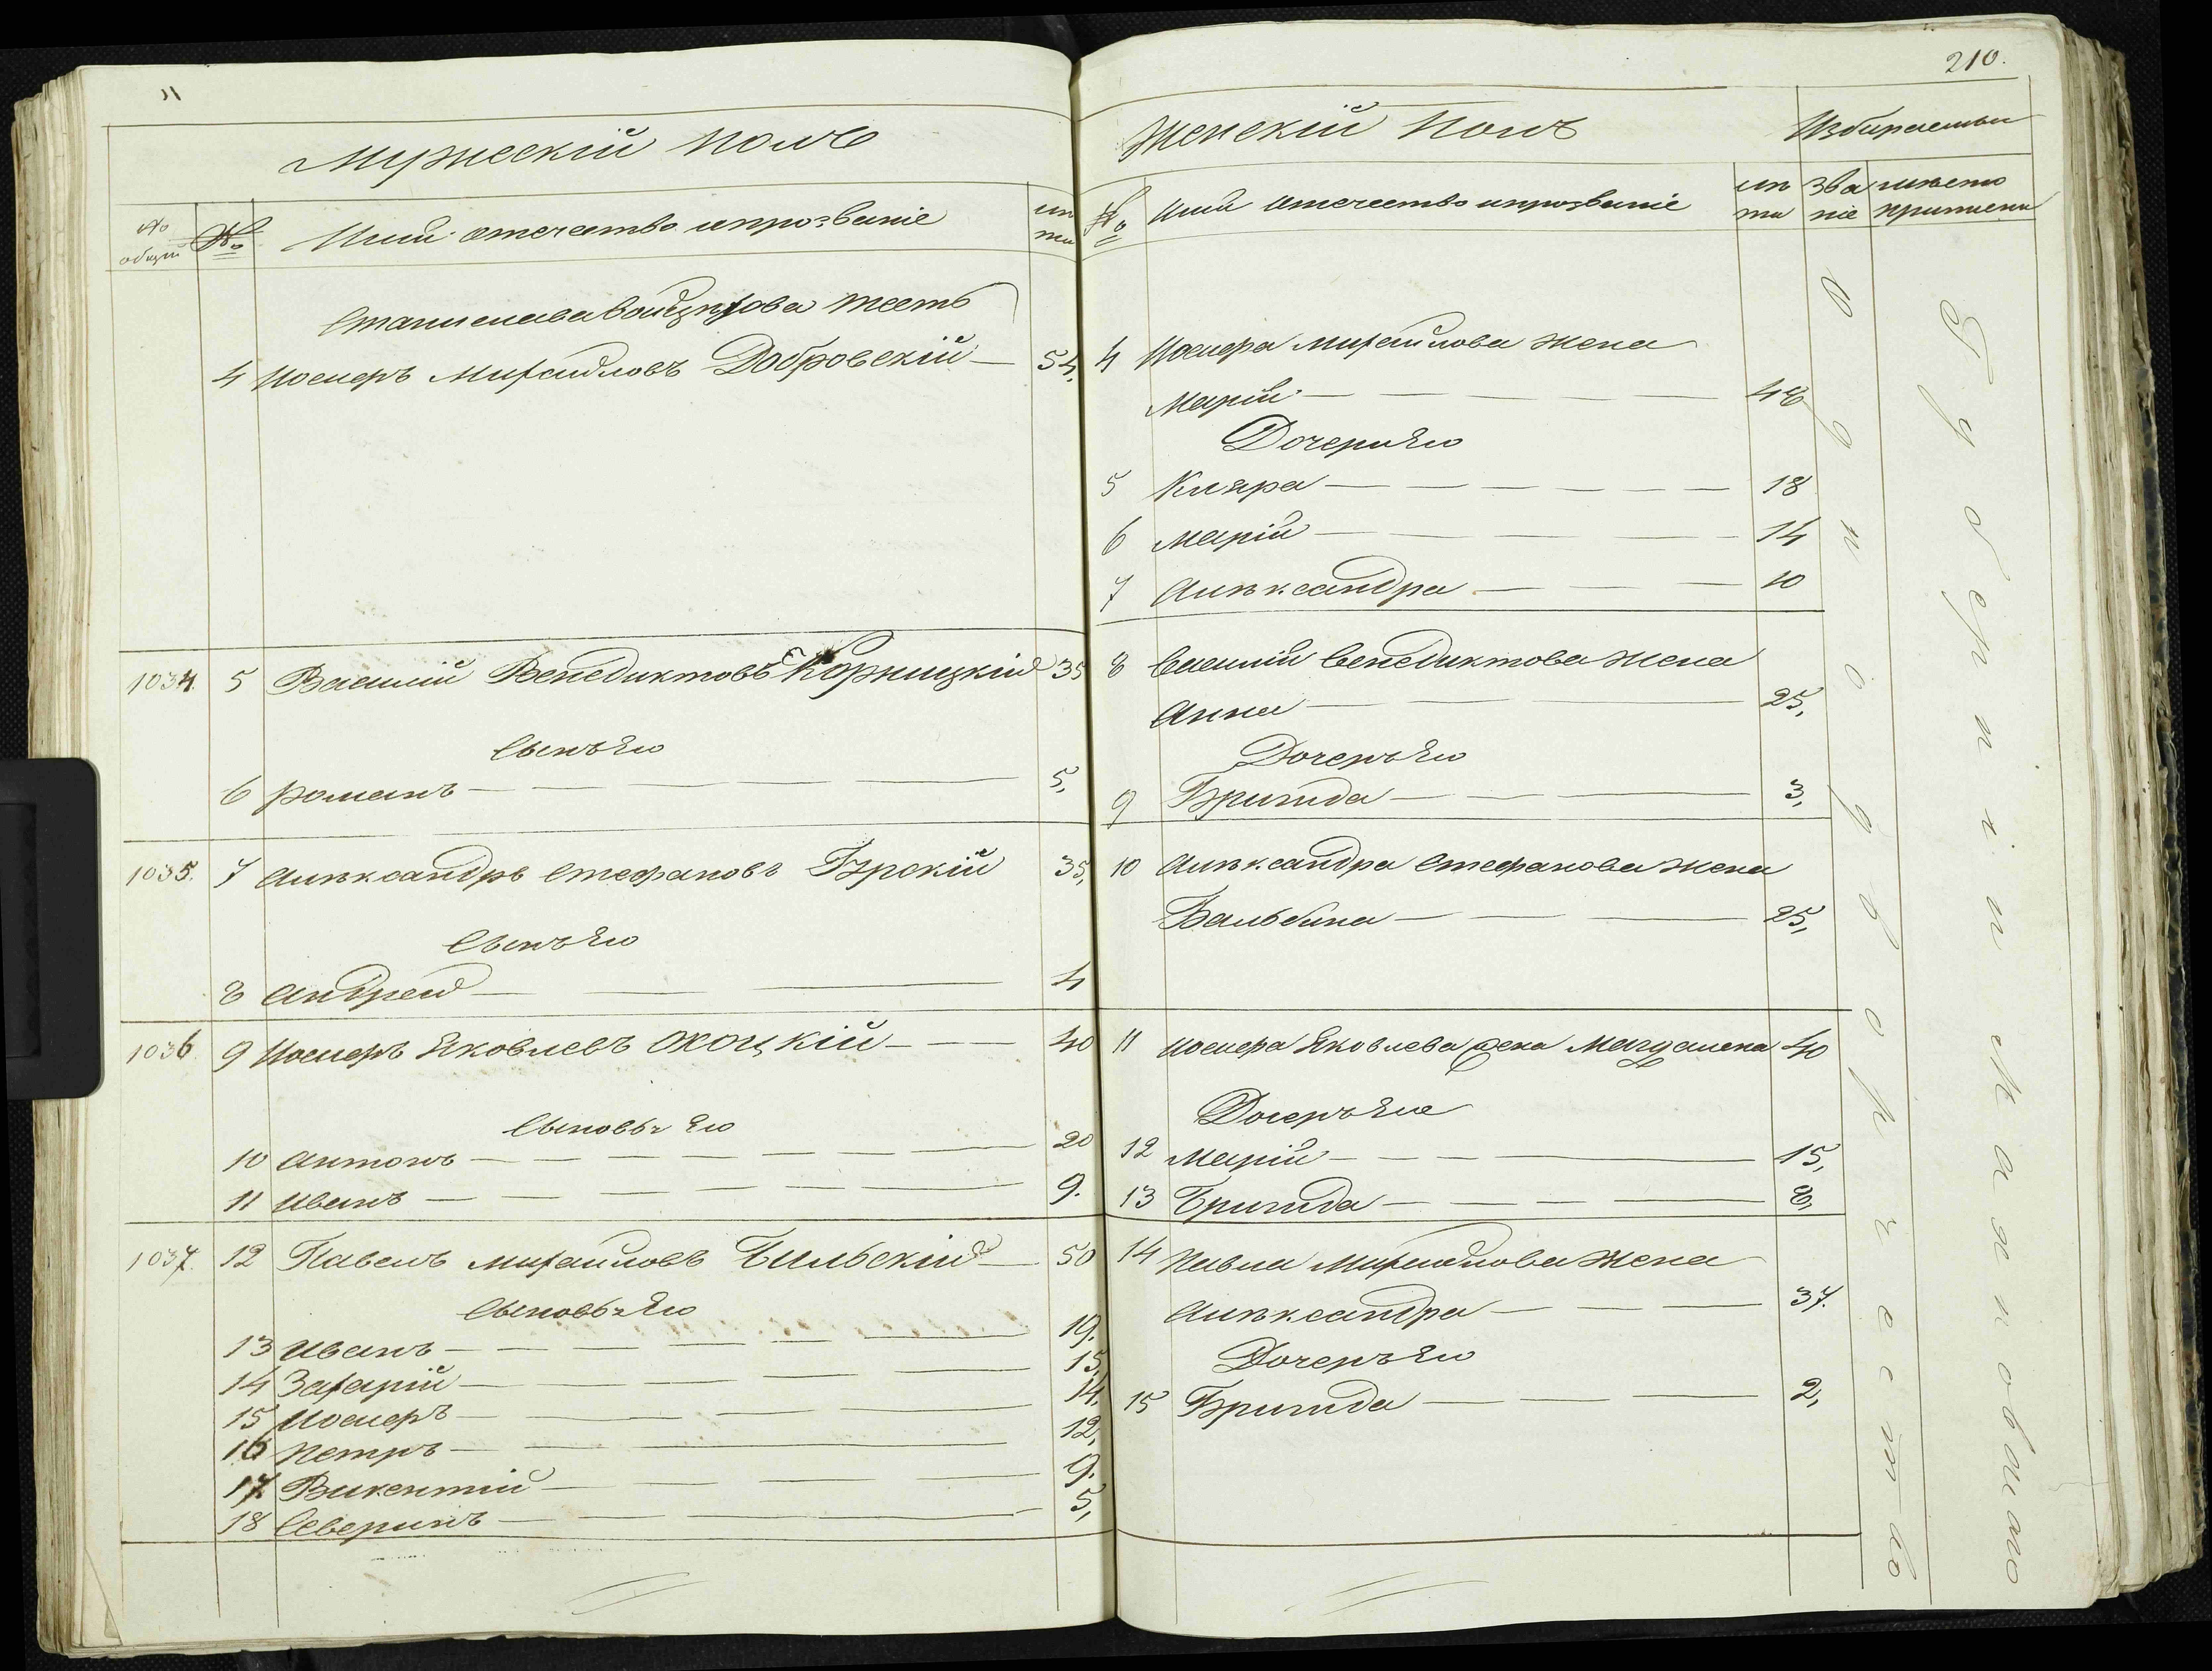 210.
Мужескій полъ
№ общій
№
Имя отчество и прозваніе
лѣта
Станислава Войцѣхова тесть
4 Іосифъ Михайловъ Добровскій 54.
1034. 5 Василій Венедиктовъ Коржицкій 35
Сынъ Его
6 Романъ 5,
1035. 7 Александръ Стефановъ Бурскій 35,
Сынъ Его
8 Андрей 4
1036 9 Іосифъ Яковлевъ Окоцкій 40
Сыновья Его
10 Антонъ 20
11 Иванъ 9.
1037. 12 Павелъ Михайловъ Бильскій 50
Сыновья Его
13 Иванъ 19.
14 Захарій 15,
15 Іосифъ 14,
16 Петръ 12,
17 Викентій 9.
18 Северинъ 5,
Женскій полъ
Избираемыя
№
Имя отчество и прозваніе
лѣта
званіе
мѣсто приписки
4 Іосифа Михайлова жена
Марія 48
Дочери Его
5 Кляра 18
6 Марія 14
7 Александра 10
8 Василія Венедиктова жена
Анна 25,
Дочерь Его
9 Бригида 3,
10 Александра Стефанова жена
Бальбина 25,
11 Іосифа Яковлева жена Магдалена 40
Дочерь Его
12 Марія 15,
13 Бригида 8,
14 Павла Михайлова жена
Александра 37.
Дочерь Его
15 Бригида 2,
Однодворчество